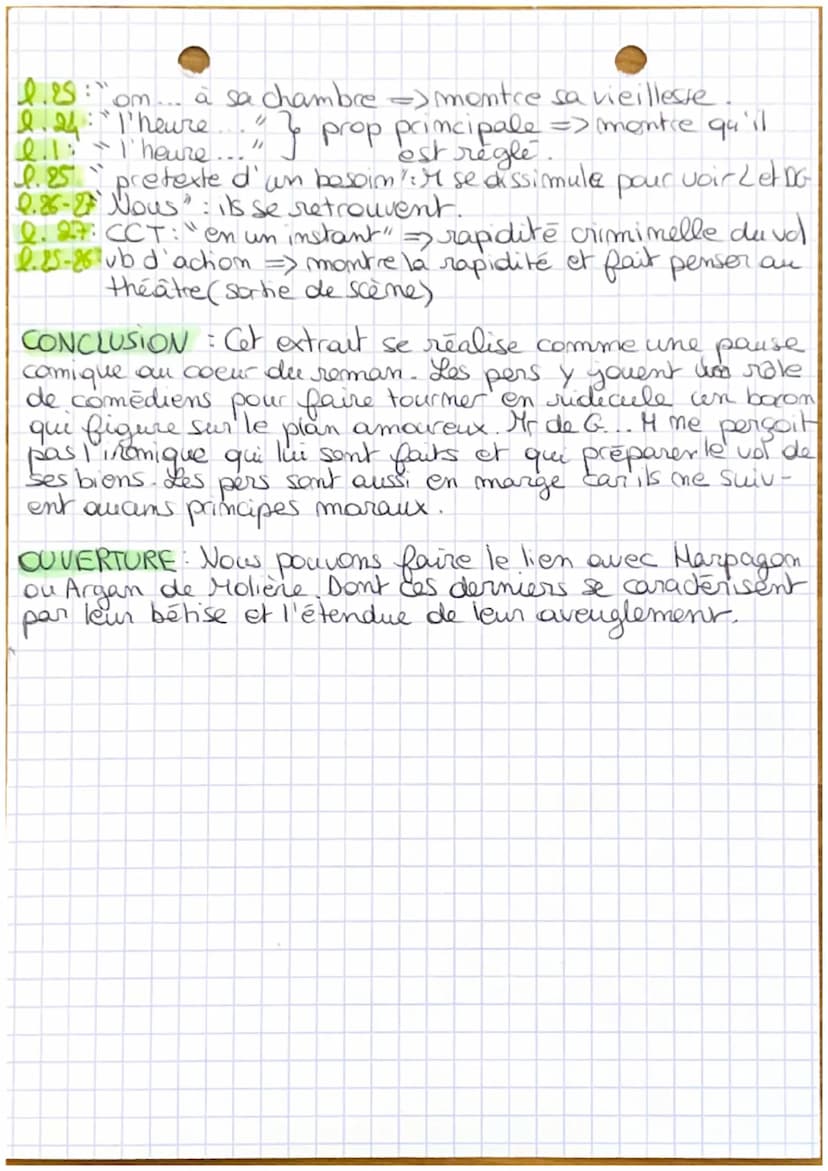 l.25 : "on... à sa chambre => montre sa vieillesse.
l.24 : "l'heure ..." } prop principale => montre qu'il
l.1 : "l'heure..." est réglé.
l.25 " prétexte d'un besoin" : M se dissimule pour voir L et DG
l.26-27 "Nous" : ils se retrouvent.
l.27 : CCT : "en un instant" => rapidité criminelle du vol
l.25-26 vb d'action => montre la rapidité et fait penser au
théâtre (sortie de scène)
CONCLUSION : Cet extrait se réalise comme une pause
comique au coeur du roman. Les pers y jouent un rôle
de comédiens pour faire tourner en ridicule un baron
qui figure sur le plan amoureux. Mr de G... M ne perçoit
pas l'ironique qui lui sont faits et qui préparer le vol de
ses biens. Les pers sont aussi en marge car ils ne suiv-
ent aucuns principes moraux.
OUVERTURE : Nous pouvons faire le lien avec Harpagon
ou Argan de Molière. Dont ces derniers se caractérisent
par leur bêtise et l'étendue de leur aveuglement.